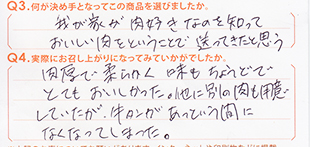 Q3.何が決め手となってこの商品を選びましたか。
我が家が肉好きなのを知って
おいしい肉をということで送ってきたと思う
Q4.実際にお召し上がりになってみていかがでしたか。
肉厚で柔らかく味もちょうどで
とてもおいしかった。他に別の肉も用意
していたが、牛タンがあっという間に
なくなってしまった。